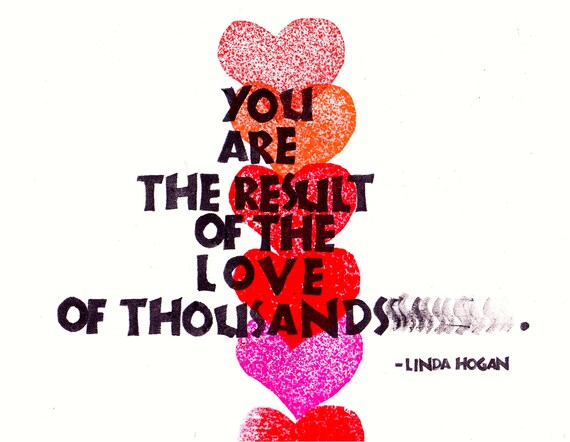 YOU
ARE
THE RESULT
OF THE
LOVE
OF THOUSANDS.
-LINDA HOGAN